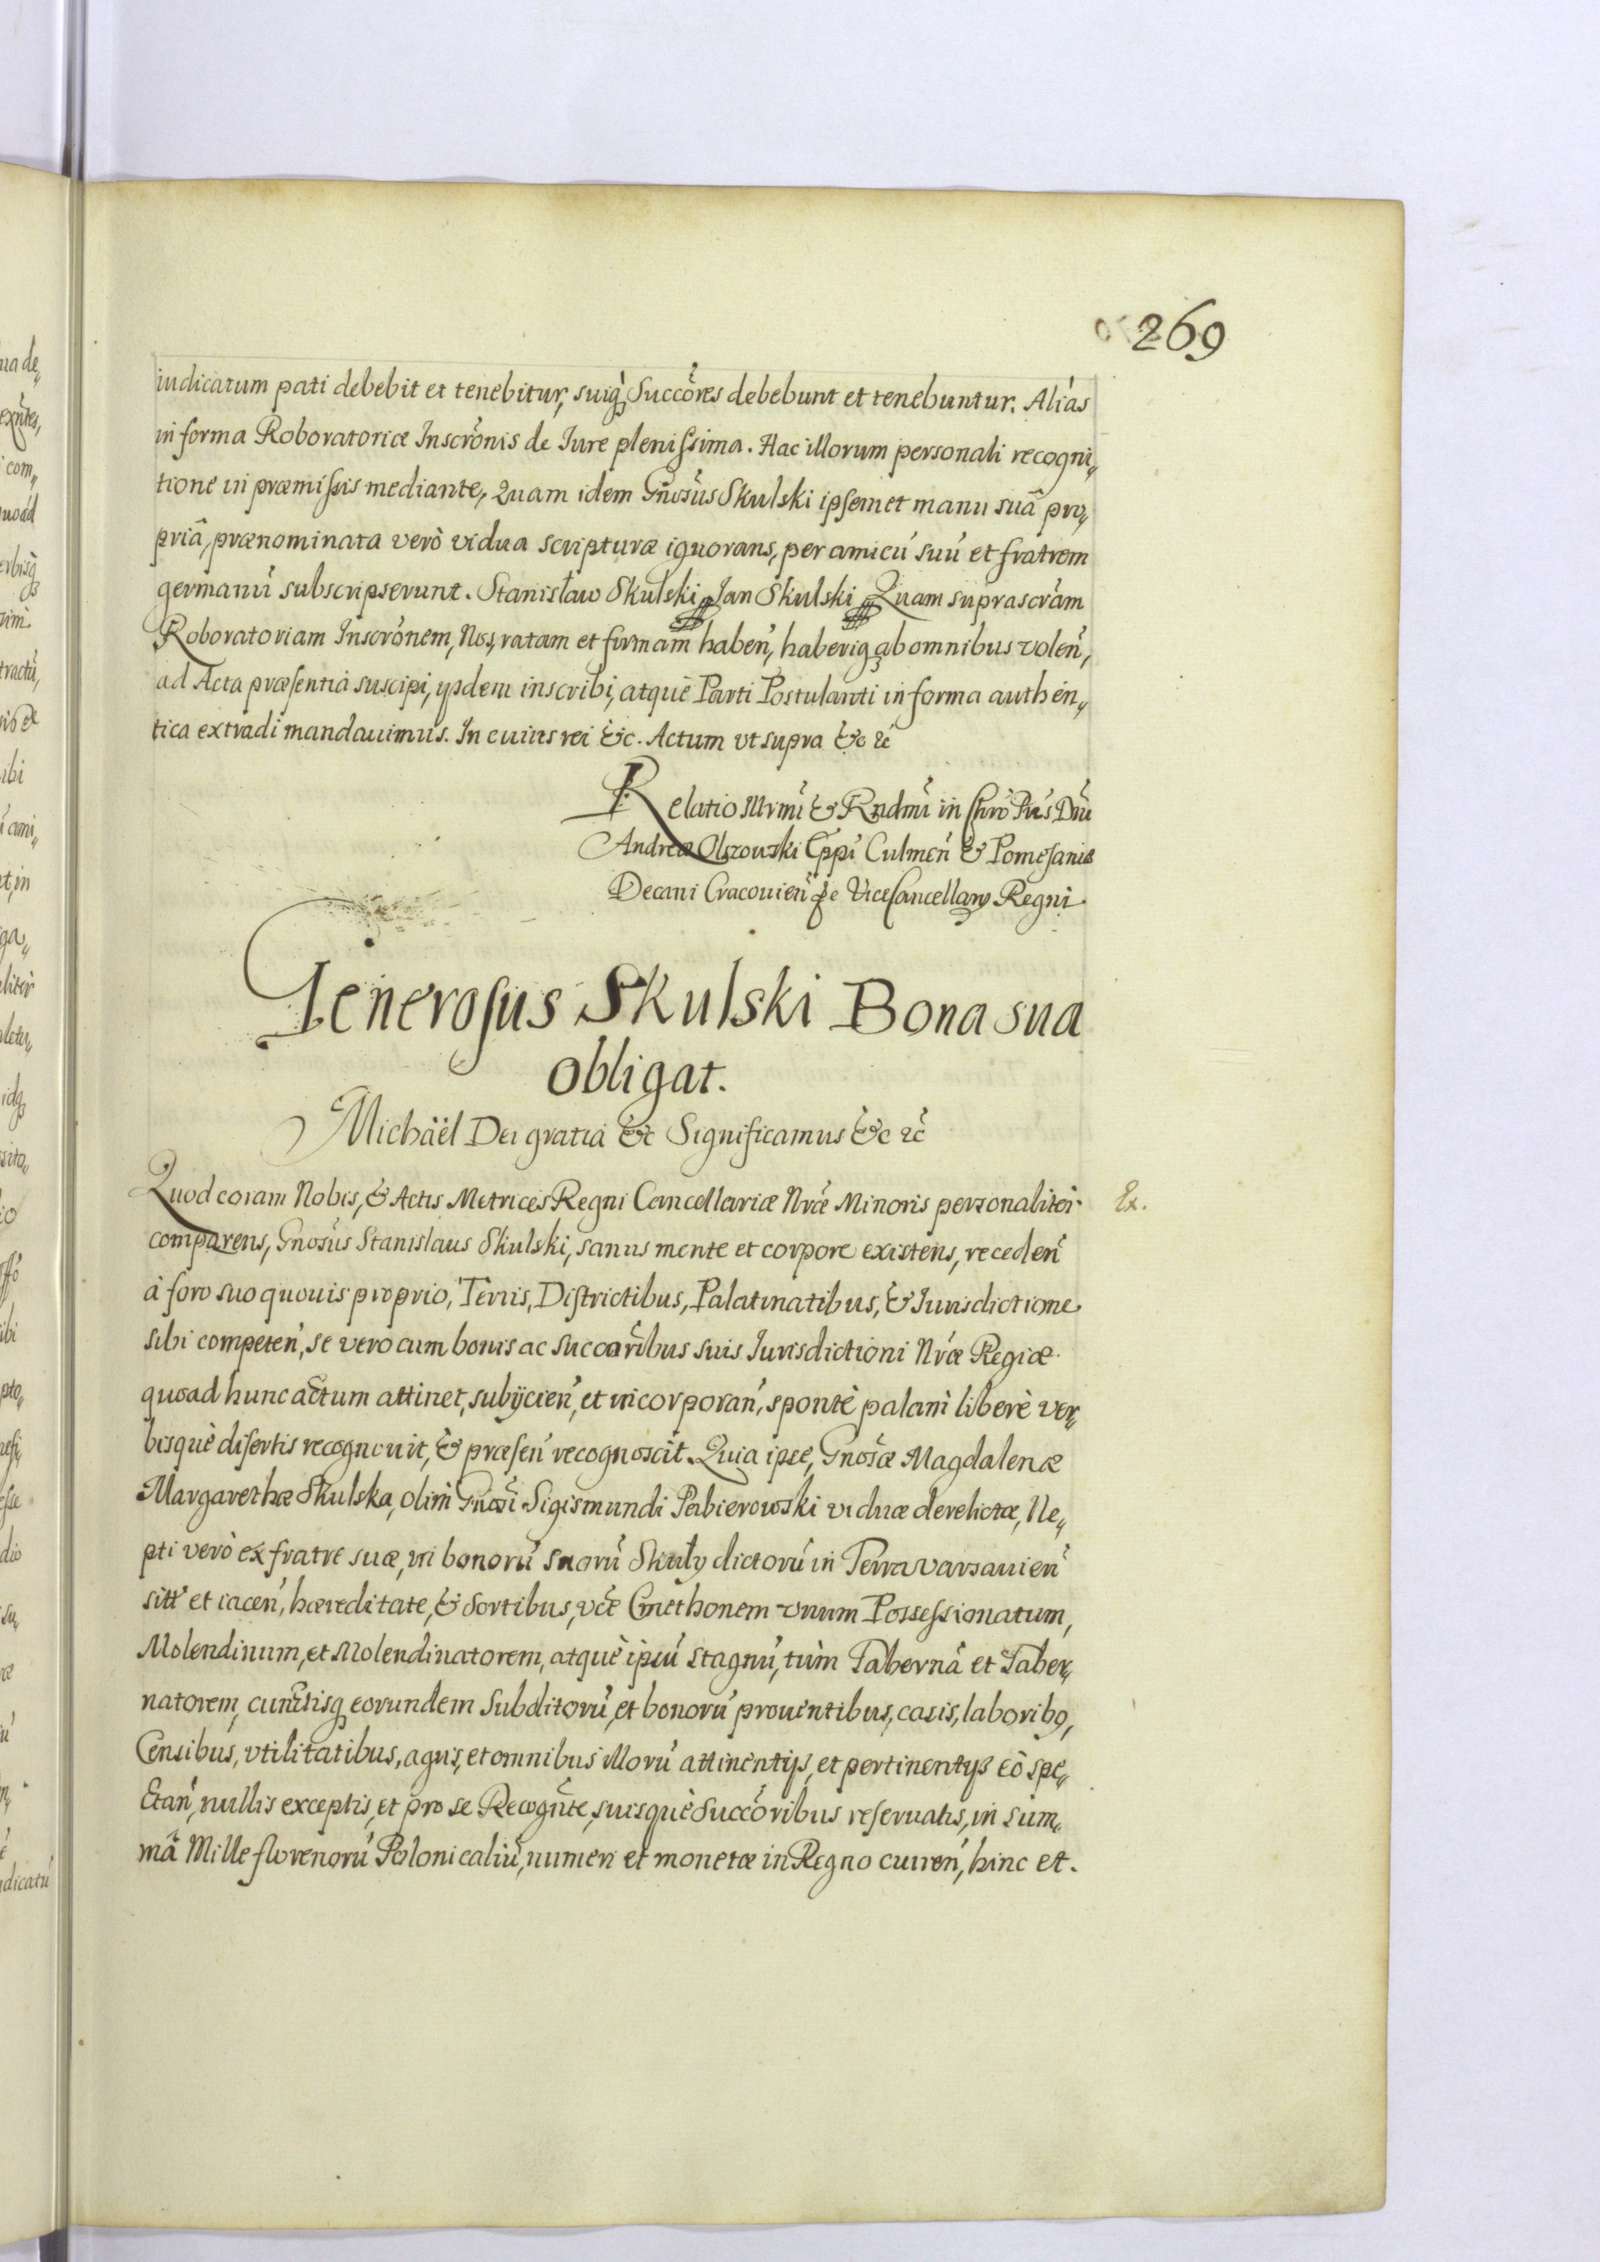 269
iudicatum pati debebit et tenebitur, suiq́ꝫ Succores debebunt et tenebuntur. Aliás
in forma Roboratoriæ Inscrónis de Iure plenissima. Hac illorum personali recogni„
tione in præmissis mediante, Quam idem Gnosus Skulski ipsemet manu suâ pro„
priâ, prænominata verò vidua scripturæ ignorans, per amicú suú et fratrem
germanú subscripserunt. Stanisław Skulski Jan Skulski Quam suprascrám
Roboratoriam Inscrónem, Nos, ratam et firmam haben, haberiqꝫ ab omnibus volen,
ad Acta præsentia suscipi, ysdem inscribi, atquè Parti Postulanti in forma authen„
tica extradi mandauimus. In cuius rei &c. Actum vt supra &c &c
Relatio Illrmi & Rndmi in Chro Pris Dni
Andreæ Olszowski Eppi Culmen & Pomesaniæ
Decani Cracouien Vicecancellarÿ Regni
Generosus Skulski Bona sua
obligat.
Michäel Dei gratia &c Significamus &c &c
Quod coram Nobis, & Actis Metrices Regni Cancellariæ Nræ Minoris personaliter
Ex.
comparens, Gnosus Stanislaus Skulski, sanus mente et corpore existens, receden
à foro suo quouis proprio, Terris, Districtibus, Palatinatibus, & Iurisdictione
sibi competen, se vero cum bonis ac succoribus suis Iurisdictioni Nræ Regiæ
quoad hunc actum attinet, subÿcien, et incorporan, spontè palam liberè ver„
bisquè disertis recognouit, & præsen recognoscit. Quia ipse, Gnosæ Magdalenæ
Margarethæ Skulska, olim Gnosi Sigismundi Pabierowski viduæ derelictæ, Ne„
pti verò ex fratre suæ, in bonorú suorú Skuły dictorú in Terra Varsauien
sitt et iacen, hæreditate, & sortibus, vct Cmethonem vnum Possessionatum,
Molendinum, et Molendinatorem, atquè ipsú stagnú, tùm Tabernâ et Taber„
natorem, cunctisqꝫ eorundem Subditorú, et bonorú prouentibus, casis, laboribꝯ,
Censibus, vtilitatibus, agris, et omnibus illorú attinentÿs, et pertinentÿs eò spe„
ctan, nullis exceptis, et pro se Recognte, suisquè Succoribus reseruatis, in sum„
mâ Mille florenorú Polonicaliú, numeri et monetæ in Regno curren, hinc et